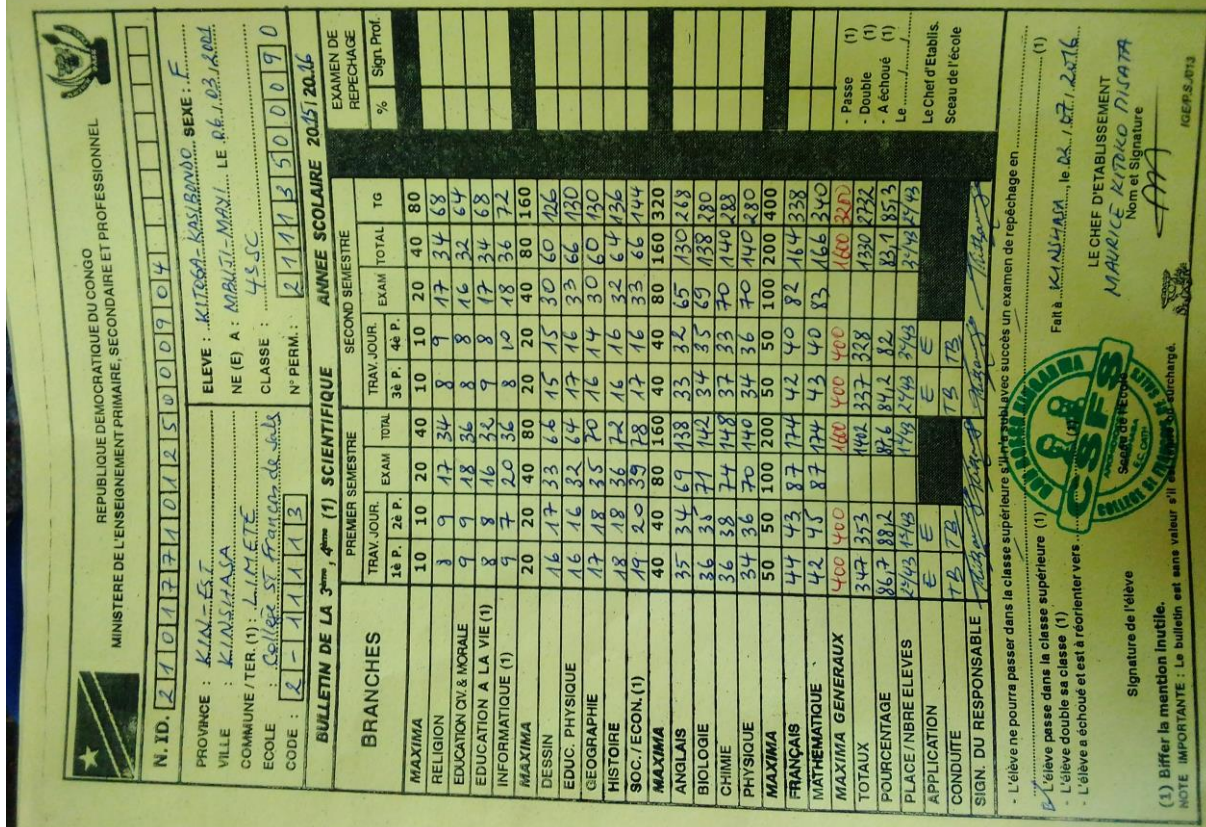 REPUBLIQUE DEMOCRATIQUE DU CONGO
MINISTERE DE L'ENSEIGNEMENT PRIMAIRE, SECONDAIRE ET PROFESSIONNEL
N. ID. 2 1 0 1 7 7 1 0 1 2 5 0 0 0 9 0 4
PROVINCE : KIN-EST
VILLE : KINSHASA
COMMUNE / TER. (1) : LIMETE
ECOLE : College St François de Sals
CODE : 2 - 1 1 1 1 3
ELEVE : KITOGA-KASIBONDO SEXE : F
NE (E) A : MBUTI-MAYI LE 06 / 03 / 2001
CLASSE : 4è SC
N° PERM. : 2 1 1 1 3 5 0 0 0 9 0
BULLETIN DE LA 3ème, 4ème (1) SCIENTIFIQUE ANNEE SCOLAIRE 2015 / 2016
BRANCHES PREMIER SEMESTRE SECOND SEMESTRE EXAMEN DE REPECHAGE
TRAV. JOUR. EXAM TOTAL TRAV. JOUR. EXAM TOTAL TG % Sign. Prof.
1è P. 2è P. 3è P. 4è P.
MAXIMA 10 10 20 40 10 10 20 40 80
RELIGION 8 9 17 34 8 9 17 34 68
EDUCATION CIV. & MORALE 9 9 18 36 8 8 16 32 64
EDUCATION A LA VIE (1) 8 8 16 32 9 8 17 34 68
INFORMATIQUE (1) 9 7 20 36 8 10 18 36 72
MAXIMA 20 20 40 80 20 20 40 80 160
DESSIN 16 17 33 66 15 15 30 60 126
EDUC. PHYSIQUE 16 16 32 64 17 16 33 66 130
GEOGRAPHIE 17 18 35 70 16 14 30 60 130
HISTOIRE 18 18 36 72 16 16 32 64 136
SOC. / ECON. (1) 19 20 39 78 17 16 33 66 144
MAXIMA 40 40 80 160 40 40 80 160 320
ANGLAIS 35 34 69 138 33 32 65 130 268
BIOLOGIE 36 35 71 142 34 35 69 138 280
CHIMIE 36 38 74 148 37 33 70 140 288
PHYSIQUE 34 36 70 140 34 36 70 140 280
MAXIMA 50 50 100 200 50 50 100 200 400
FRANÇAIS 44 43 87 174 42 40 82 164 338
MATHEMATIQUE 42 45 87 174 43 40 83 166 340
MAXIMA GENERAUX 400 400 1600 400 400 1600 3200
TOTAUX 347 353 1402 337 338 1330 2732
POURCENTAGE 86,7 88,2 87,6 84,2 82 83,1 85,3
PLACE / NBRE ELEVES 2è/43 1è/43 1è/43 2è/43 3è/43 3è/43 2è/43
APPLICATION E E E E
CONDUITE TB TB TB TB
SIGN. DU RESPONSABLE
- Passe (1)
- Double (1)
- A échoué (1)
Le ....../....../......
Le Chef d'Etablis.
Sceau de l'école
- L'élève ne pourra passer dans la classe supérieure s'il n'a subi avec succès un examen de repêchage en (1)
- L'élève passe dans la classe supérieure (1)
- L'élève double sa classe (1)
- L'élève a échoué et est à réorienter vers
Fait à KINSHASA, le 02 / 07 / 2016
Signature de l'élève
Sceau de l'Ecole
CSFS
LE CHEF D'ETABLISSEMENT
MAURICE KITOKO DISATA
Nom et Signature
(1) Biffer la mention inutile.
NOTE IMPORTANTE : Le bulletin est sans valeur s'il est raturé ou surchargé.
IGE/P.S./013